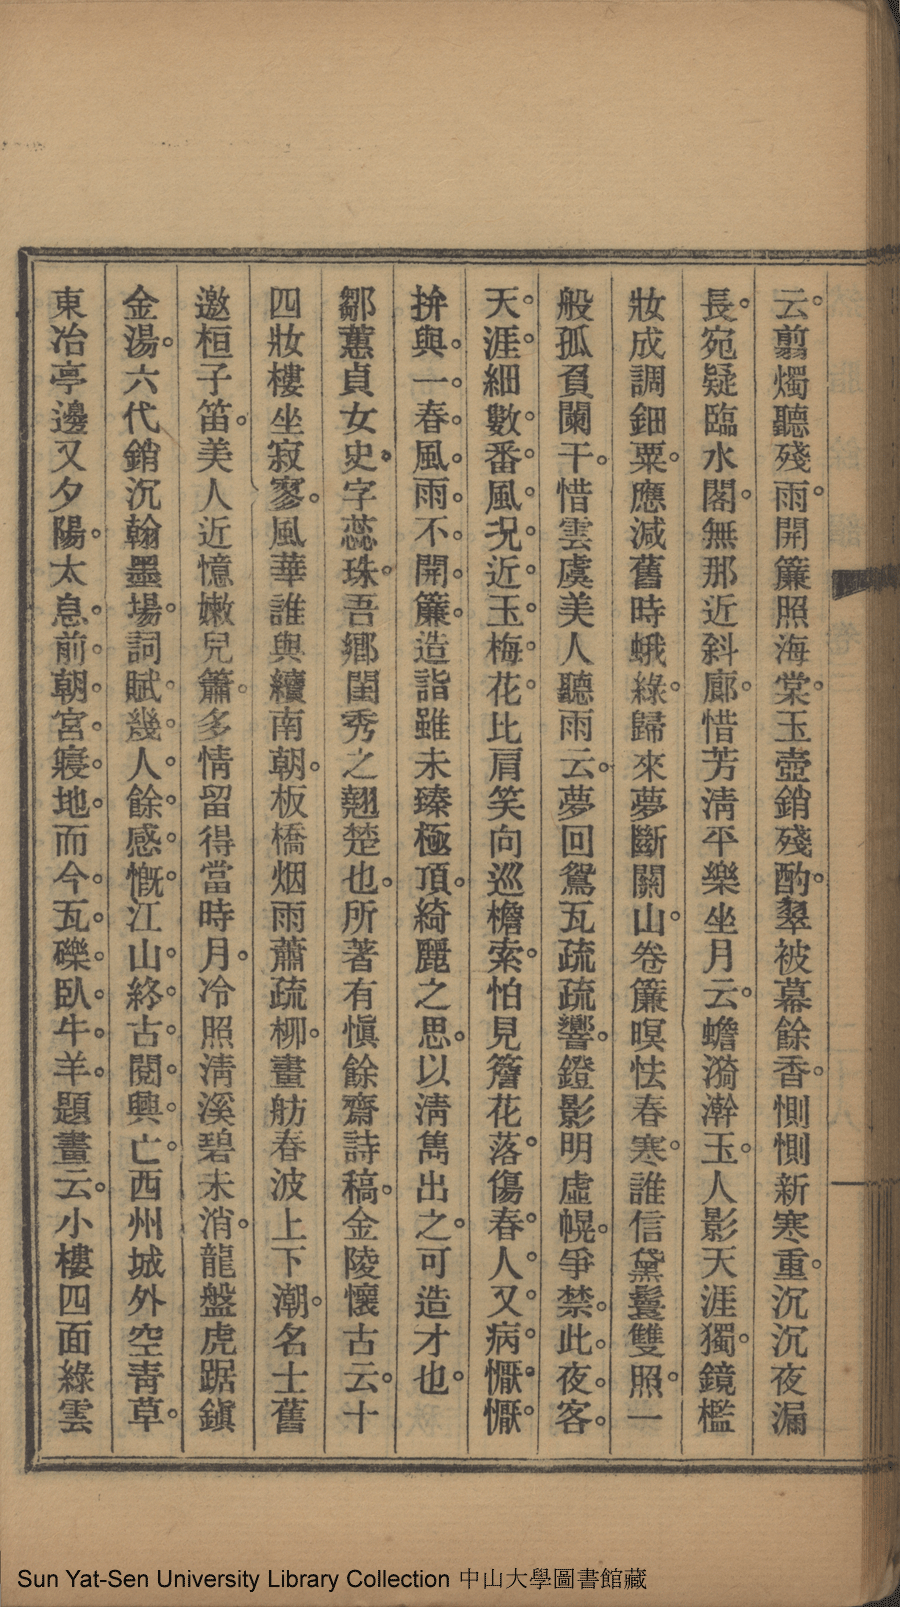 云。剪燭聽殘雨。開簾照海棠。玉壺銷殘酌。翠被幕餘香。惻惻新寒重。沉沉夜漏
長。宛疑臨水閣。無那近斜廊。惜芳淸平樂坐月云。蟾漪澣玉。人影天涯獨。鏡檻
妝成調鈿粟。應減舊時蛾綠。歸來夢斷關山。卷簾暝怯春寒。誰信黛鬟雙照。一
般孤負闌干。惜雲虞美人聽雨云。夢回鴛瓦疏疏響。鐙影明虛幌。爭禁。此。夜。客。
天。涯。細數。番。風。況。近。玉。梅。花。比肩笑向巡檐索。怕見簷花落。傷春。人。又。病。懨。懨。
拚與。一。春。風。雨。不。開。簾。造詣雖未臻極頂。綺麗之思。以淸雋出之。可造才也。
鄒蕙貞女史。字蕊珠。吾鄕閨秀之翹楚也。所著有愼餘齋詩稿。金陵懷古云。十
四妝樓坐寂寥。風華誰與續南朝。板橋烟雨蕭疏柳。畫舫春波上下潮。名士舊
邀桓子笛。美人近憶嫩兒簫。多情留得當時月。冷照淸溪碧未消。龍盤虎踞鎭
金湯。六代銷沉翰墨場。詞賦。幾。人。餘。感。慨。江山。終。古。閱。興。亡。西州城外空靑草。
東冶亭邊又夕陽。太息。前。朝。宮。寢。地。而今。瓦。礫。臥。牛。羊。題畫云。小樓四面綠雲
Sun Yat-Sen University Library Collection 中山大學圖書館藏